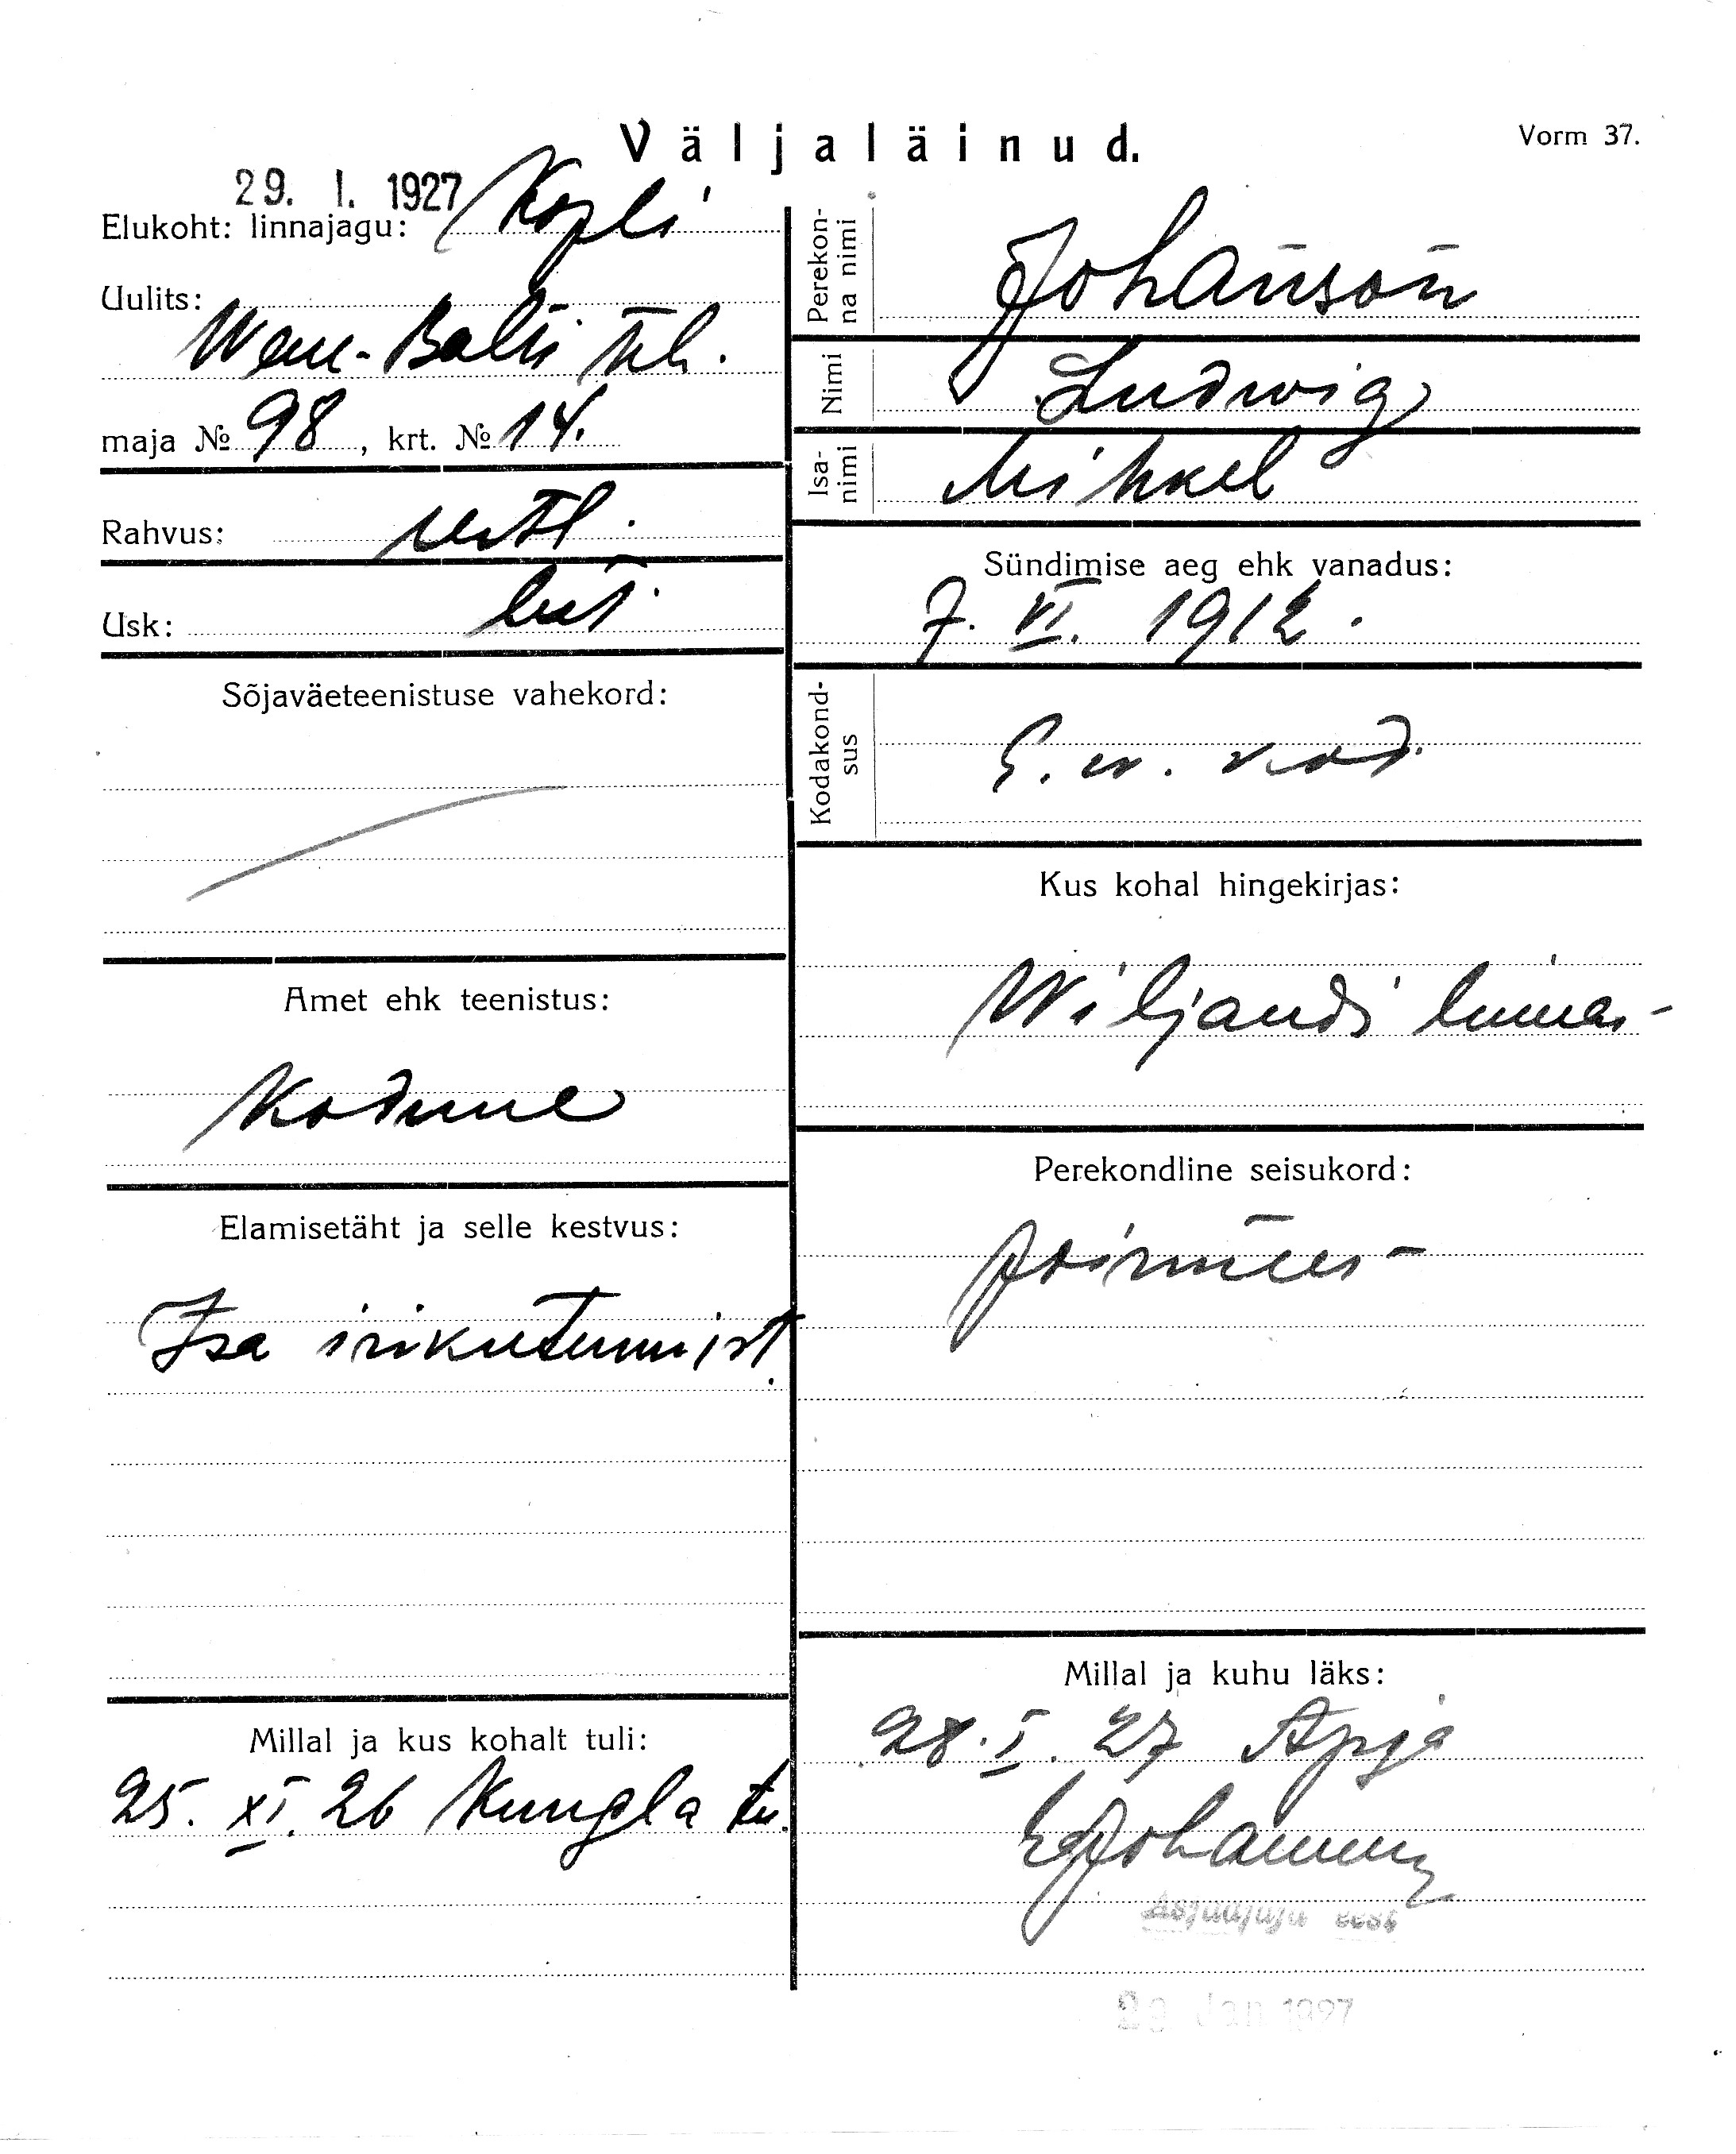 Väljaläinud.
Vorm 37.
29. I. 1927
Elukoht: linnajagu: Kopli
Uulits:
Wene-Balti teh.
maja № 98, krt. № 14.
Rahvus: eestl.
Usk: lut.
Sõjaväeteenistuse vahekord:
Amet ehk teenistus:
Kodune
Elamisetäht ja selle kestvus:
Isa isikutunnist.
Millal ja kus kohalt tuli:
25. XI. 26 Kungla tn.
Perekon-
na nimi
Johanson
Nimi
Ludwig
Isa-
nimi
Mihkel
Sündimise aeg ehk vanadus:
7. VI. 1912.
Kodakond-
sus
E. w. kod.
Kus kohal hingekirjas:
Wiljandi linnas
Perekondline seisukord:
poismees
Millal ja kuhu läks:
28. I. 27 Apja
EJohanson
Asjaajaja eest
29 Jan 1927